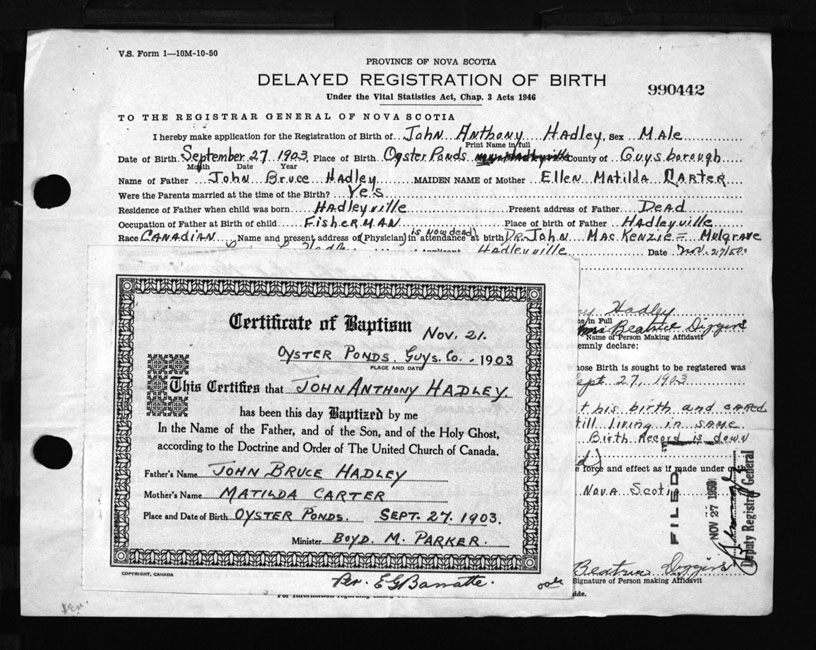 V.S. Form 1—10M-10-50
PROVINCE OF NOVA SCOTIA
DELAYED REGISTRATION OF BIRTH
990442
Under the Vital Statistics Act, Chap. 3 Acts 1946
TO THE REGISTRAR GENERAL OF NOVA SCOTIA
I hereby make application for the Registration of Birth of John Anthony Hadley, Sex Male
Print Name in full
Date of Birth September 27, 1903 Place of Birth Oyster Ponds County of Guysborough
Month Date Year
Name of Father John Bruce Hadley MAIDEN NAME of Mother Ellen Matilda Carter
Were the Parents married at the time of the Birth? Yes
Residence of Father when child was born Hadleyville Present address of Father Dead
Occupation of Father at Birth of child Fisherman Place of birth of Father Hadleyville
Race Canadian Name and present address of (Physician) in attendance at birth Dr. John MacKenzie = Mulgrave
(is now dead)
Hadleyville Date Nov. 27/50
Certificate of Baptism
Nov. 21.
Oyster Ponds. Guys. Co. - 1903
PLACE AND DATE
This Certifies that John Anthony Hadley.
has been this day Baptized by me
In the Name of the Father, and of the Son, and of the Holy Ghost,
according to the Doctrine and Order of The United Church of Canada.
Father's Name John Bruce Hadley
Mother's Name Matilda Carter
Place and Date of Birth Oyster Ponds. Sept. 27. 1903.
Minister Boyd. M. Parker.
COPYRIGHT, CANADA
Per. E G Barratte.
Hadley
in Full
Mrs Beatrice Diggins
Name of Person Making Affidavit
emnly declare:
hose Birth is sought to be registered was
Sept 27, 1903
this birth and cared
till living in same
Birth Record is down
force and effect as if made under
Nova Scoti
FILED
NOV 27 1950
Deputy Registrar General
Beatrice Diggins
Signature of Person making Affidavit